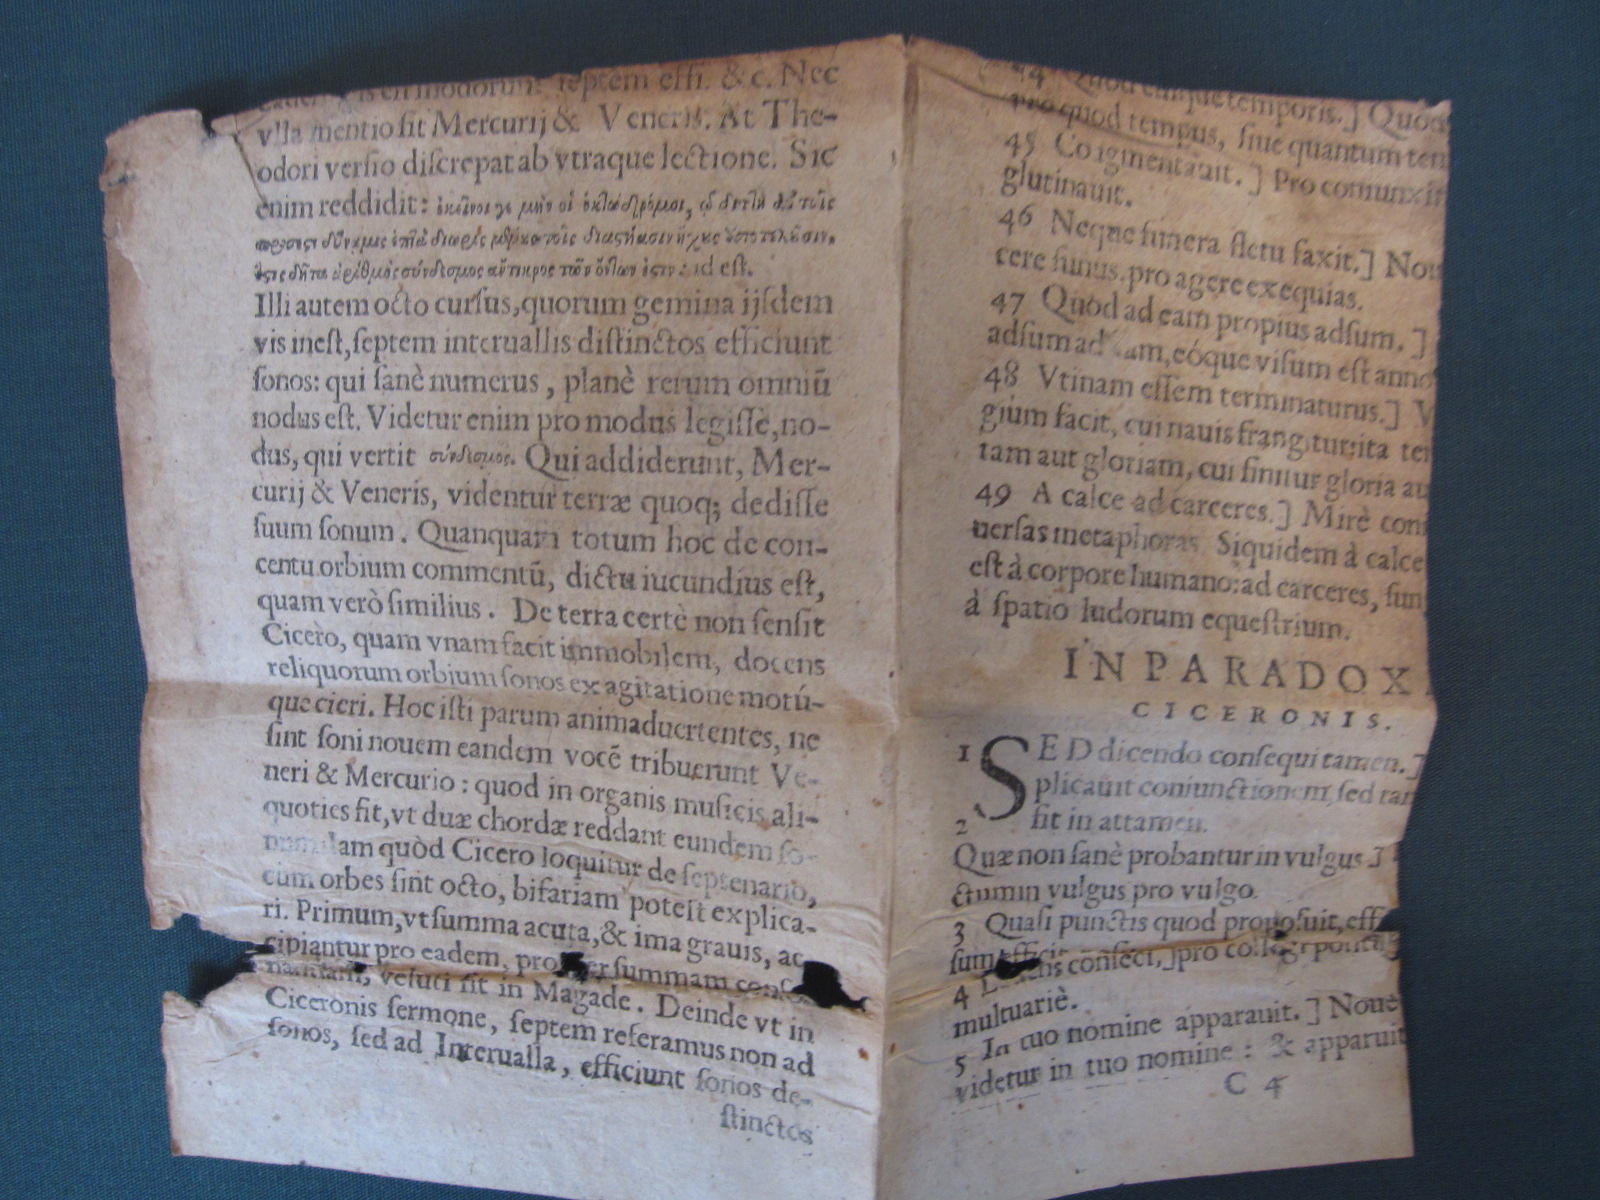 is en modorum septem essi. & c. Nec
vlla mentio sit Mercurij & Veneris. At The-
odori versio discrepat ab vtraque lectione. Sic
enim reddidit:
id est.
Illi autem octo cursus, quorum gemina ijsdem
vis inest, septem interuallis distinctos efficiunt
sonos: qui sanè numerus, planè rerum omniū
nodus est. Videtur enim pro modus legisse, no-
dus, qui vertit σύνδεσμος. Qui addiderunt, Mer-
curij & Veneris, videntur terræ quoq; dedisse
suum sonum. Quanquam totum hoc de con-
centu orbium commentū, dictu iucundius est,
quam verò similius. De terra certè non sensit
Cicero, quam vnam facit immobilem, docens
reliquorum orbium sonos ex agitatione motú-
que cieri. Hoc isti parum animaduertentes, ne
sint soni nouem eandem vocē tribuerunt Ve-
neri & Mercurio: quod in organis musicis ali-
quoties fit, vt duæ chordæ reddant eundem so-
quòd Cicero loquitur de septenario,
cùm orbes sint octo, bifariam potest explica-
ri. Primum, vt summa acuta, & ima grauis, ac
cipiantur pro eadem, summam
veluti fit in Magade. Deinde vt in
Ciceronis sermone, septem referamus non ad
sonos, sed ad Interualla, efficiunt sonos de-
stinctos
44 Quod cuique temporis.] Quod
pro quod tempus, siue quantum tem
45 Coagmentauit.] Pro coniunxit
glutinauit.
46 Neque funera fletu faxit.] Nou
cere funus, pro agere exequias.
47 Quòd ad eam propius adsum.]
adsum ad eam, eóque visum est anno
48 Vtinam essem terminaturus.] V
gium facit, cui nauis frangitur, ita ter
tam aut gloriam, cui finitur gloria au
49 A calce ad carceres.] Mirè con
uersas metaphoras. Siquidem à calce
est à corpore humano: ad carceres, sun
à spatio ludorum equestrium.
IN PARADOX
CICERONIS.
1 SED dicendo consequi tamen.]
plicauit coniunctionem, sed tam
2 fit in attamen.
Quæ non sanè probantur in vulgus.]
ctum in vulgus pro vulgo.
3 Quasi punctis quod proposuit, eff
sum
4 confeci,] pro
multuariè.
5 In tuo nomine apparauit.] Nouè
videtur in tuo nomine: & apparuit
C 4